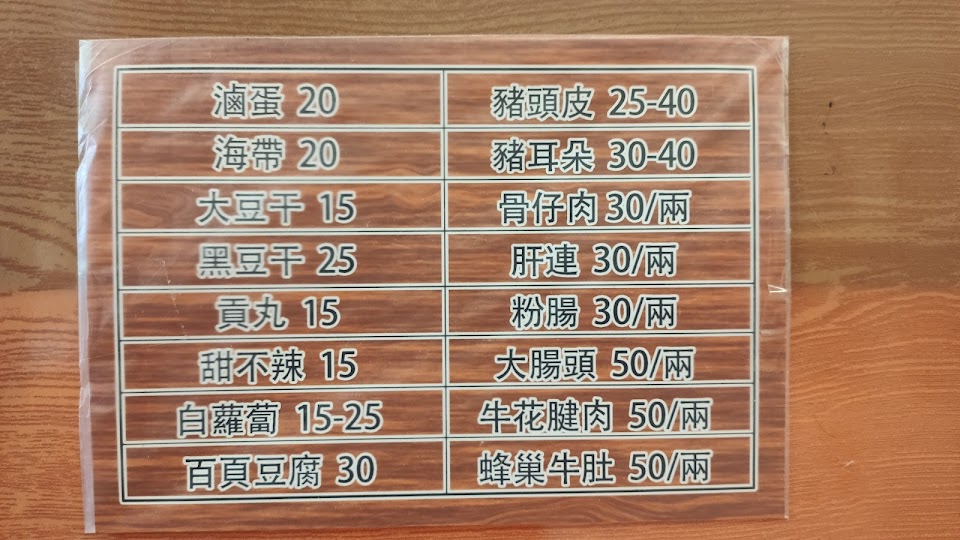 滷蛋 20
豬頭皮 25-40
海帶 20
豬耳朵 30-40
大豆干 15
骨仔肉 30/兩
黑豆干 25
肝連 30/兩
貢丸 15
粉腸 30/兩
甜不辣 15
大腸頭 50/兩
白蘿蔔 15-25
牛花腱肉 50/兩
百頁豆腐 30
蜂巢牛肚 50/兩